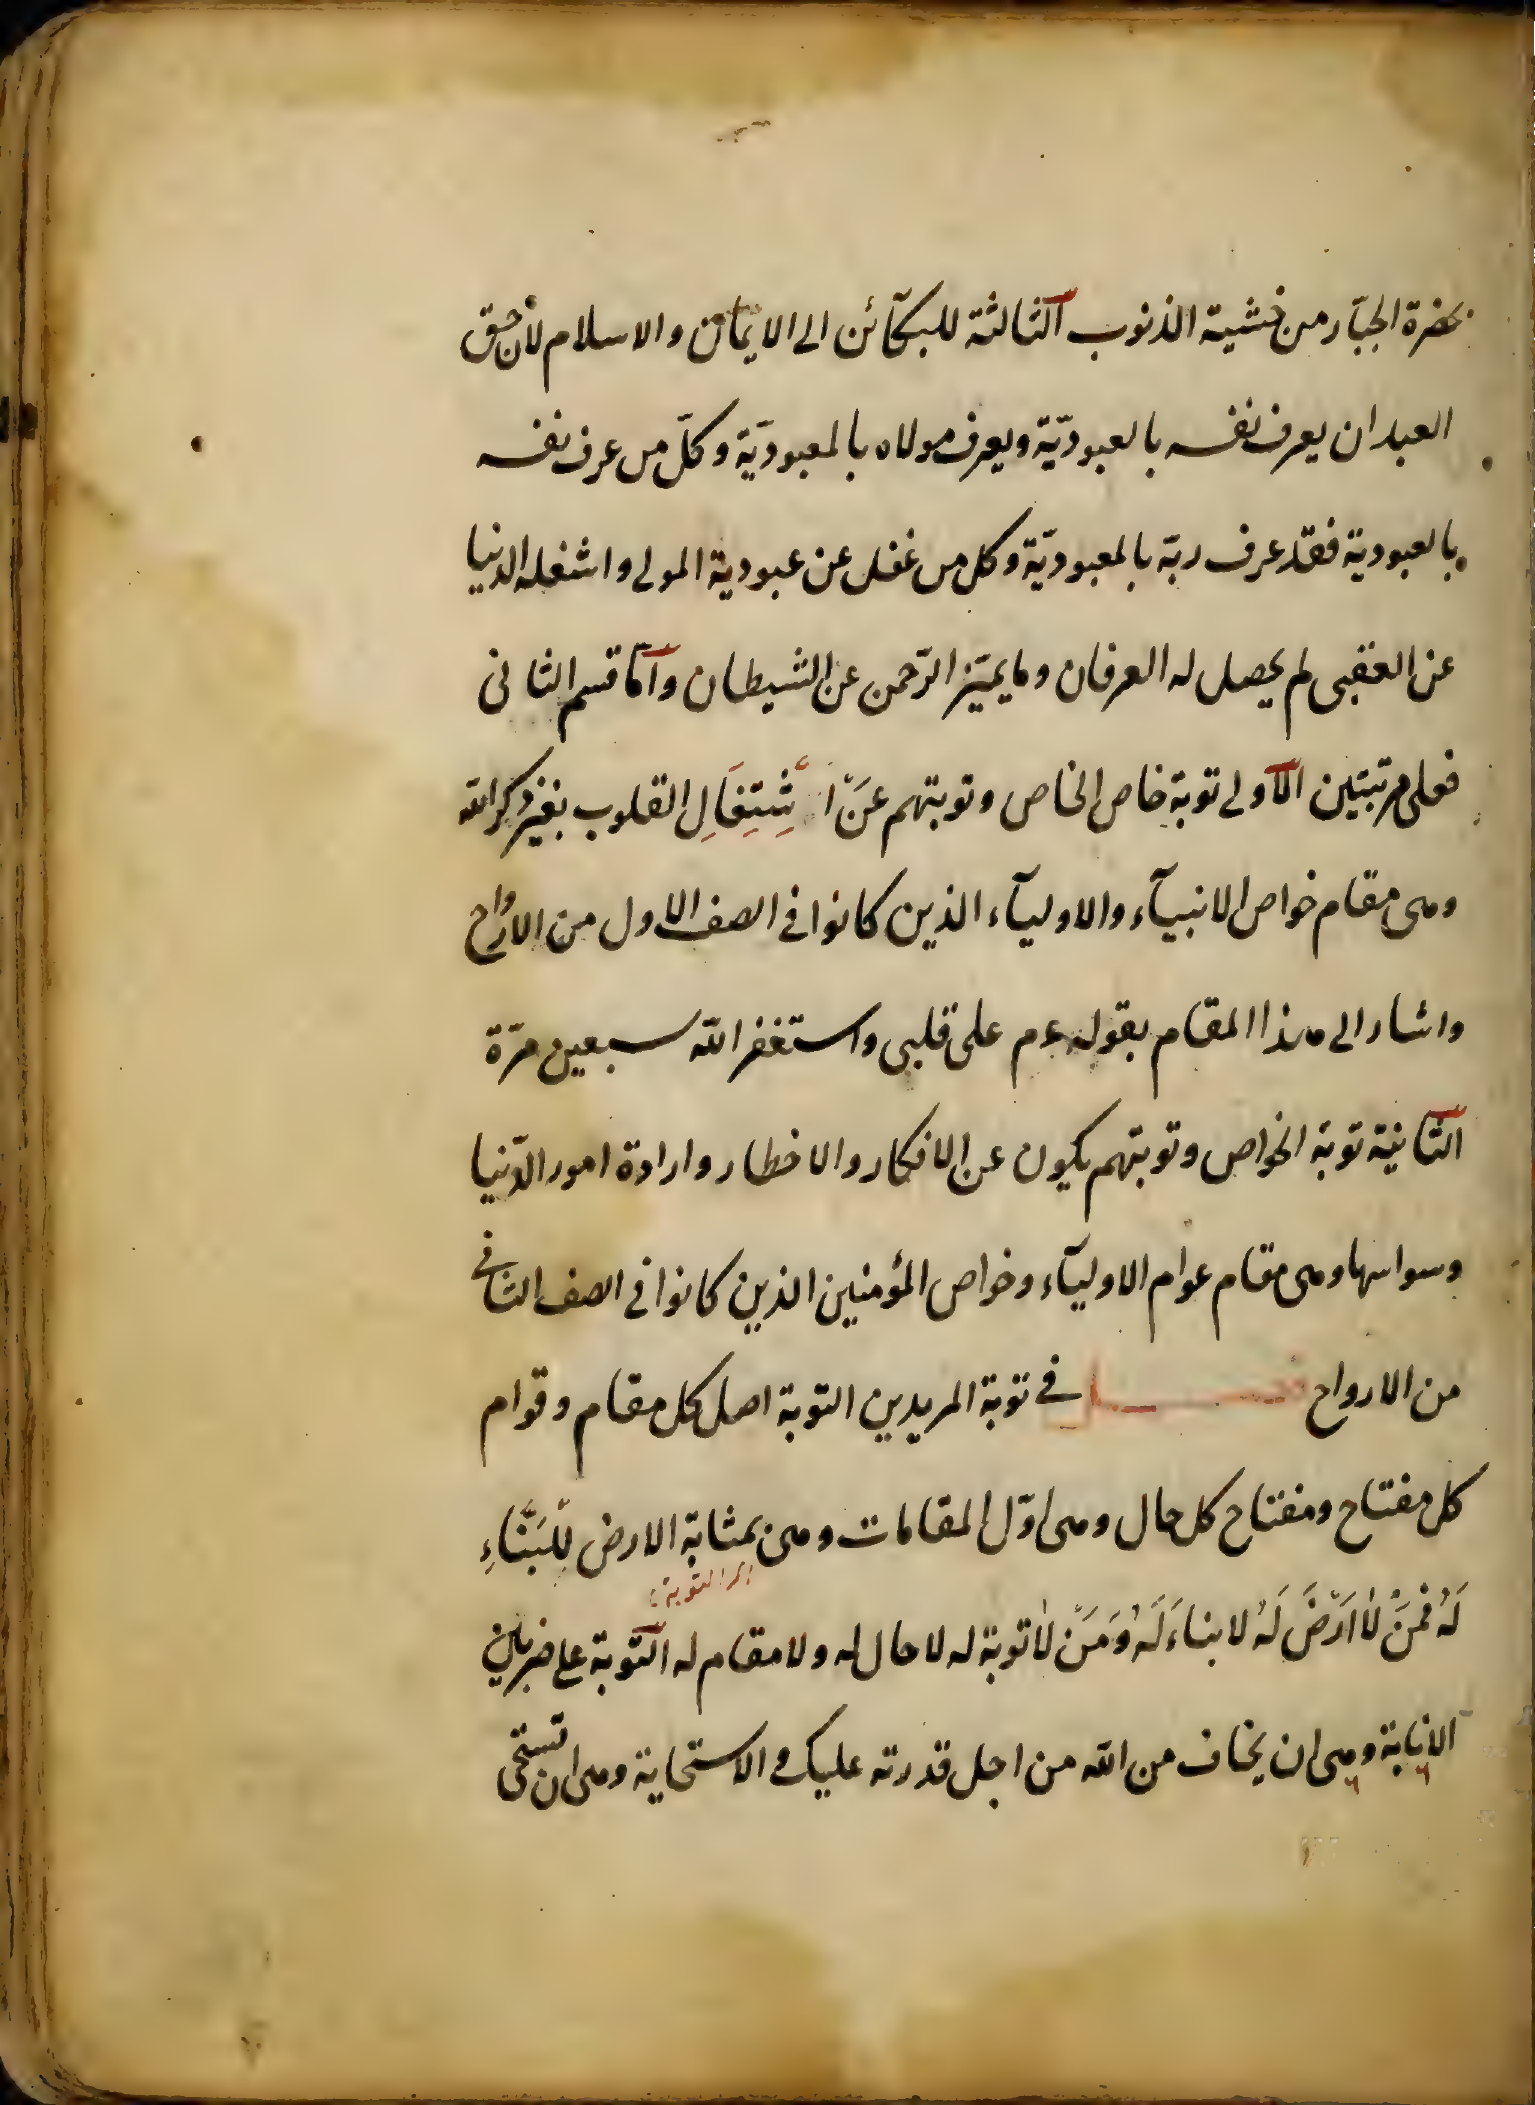 بحضرة الجبّار من خشية الذنوب الثالثة للبكآئن الى الايمان والاسلام لان حق
العبد ان يعرف نفسه بالعبوديّة ويعرف مولاه بالمعبوديّة وكلّ من عرف نفسه
بالعبودية فقد عرف ربّه بالمعبوديّة وكل من غفل عن عبودية المولى واشغله الدنيا
عن العقبى لم يحصل له العرفان وما يميّز الرّحمن عن الشيطان وآما قسم الثانى
فعلى مرتبتين الآولى توبة خاص الخاص وتوبتهم عَنّ اشْتِغَالِ القلوب بغير ذكر الله
وهى مقام خواص الانبيآء والاوليآء الذين كانوا فى الصف الاول من الارواح
واشار الى هذا المقام بقوله عم على قلبى واستغفر الله سبعين مرّة
الثّانية توبة الخواص وتوبتهم يكون عن الافكار والاخطار وارادة امور الدّنيا
وسواسها وهى مقام عوام الاوليآء وخواص المؤمنين الذين كانوا فى الصف الثانى
من الارواح فصل فى توبة المريدين التوبة اصل كل مقام وقوام
كل مفتاح ومفتاح كل حال وهى اوّل المقامات وهى بمثابة الارض لِلْبَنَّاءِ
التوبة
لَهُ فمَنْ لاَ اَرْضَ لَهُ لا بناءَ لَهُ وَمَنْ لاَ توبة له لا حال له ولا مقام له التّوبة على ضربين
الانابة وهى ان يخاف من الله من اجل قدرته عليك والاستحاية وهى ان تستحى